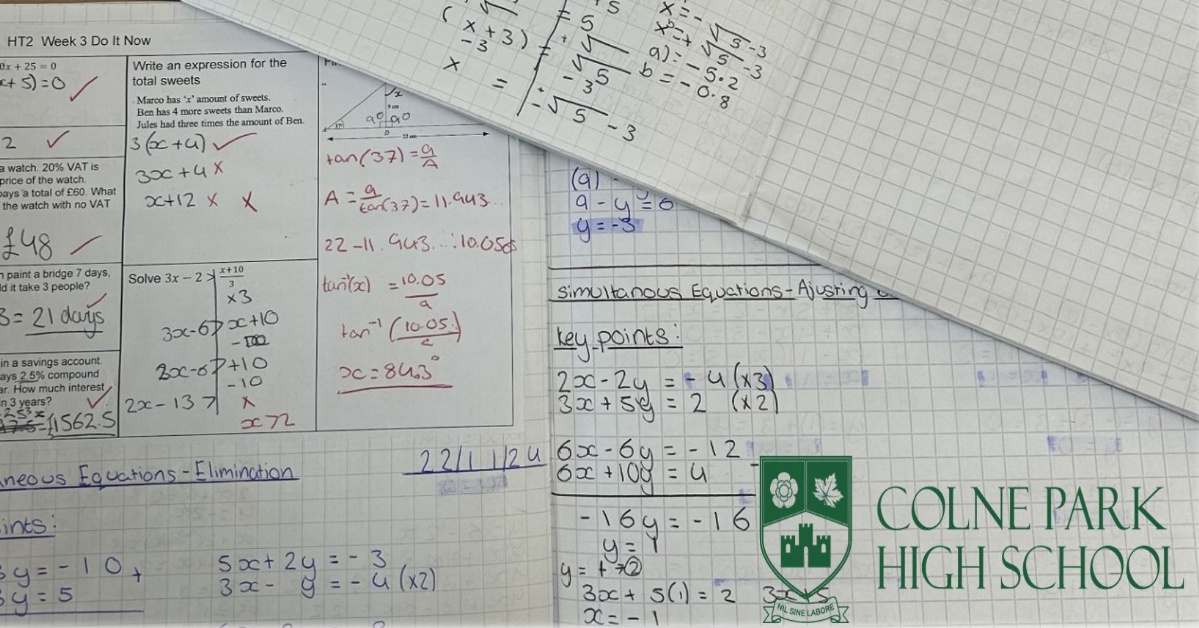 HT2 Week 3 Do It Now
x + 25 = 0
x + 5) = 0 ✓
2 ✓
a watch. 20% VAT is
price of the watch.
pays a total of £60. What
the watch with no VAT
£48
paint a bridge 7 days,
d it take 3 people?
3 = 21 days
in a savings account
ays 2.5% compound
ar. How much interest
n 3 years?
£1562.5
Write an expression for the
total sweets
Marco has 'x' amount of sweets.
Ben has 4 more sweets than Marco.
Jules had three times the amount of Ben.
3(x+4) ✓
3x+4 x
x+12 x x
Solve 3x – 2 > x+10
3
x3
3x-6 > x+10
3x-6 > +10
-10
2x - 13 > x
x>2
x
90 90
tan(37) = 9
A
A = 9
tan(37) = 11.943...
22 - 11.943...
tan⁻¹(x) = 10.05
9
tan⁻¹ (10.05)
x = 84.3°
= 5
(x + 3) =
-3
x = ±√5 - 3
x = -√5-3
x = +√5-3
a) = -5.2
b = -0.8
(9)
9 - y = 6
y = -3
Simultanous Equations - Ajusting
key points:
2x - 2y = - 4 (x3)
3x + 5y = 2 (x2)
6x - 6y = - 12
6x + 10y = 4
-16y = -16
y = 1
y = 1 → ②
3x + 5(1) = 2
x = - 1
22/11/24
neous Equations - Elimination
ints:
3y = - 10 +
3y = 5
5x + 2y = - 3
3x - y = - 4 (x2)
NIL SINE LABORE
COLNE PARK
HIGH SCHOOL